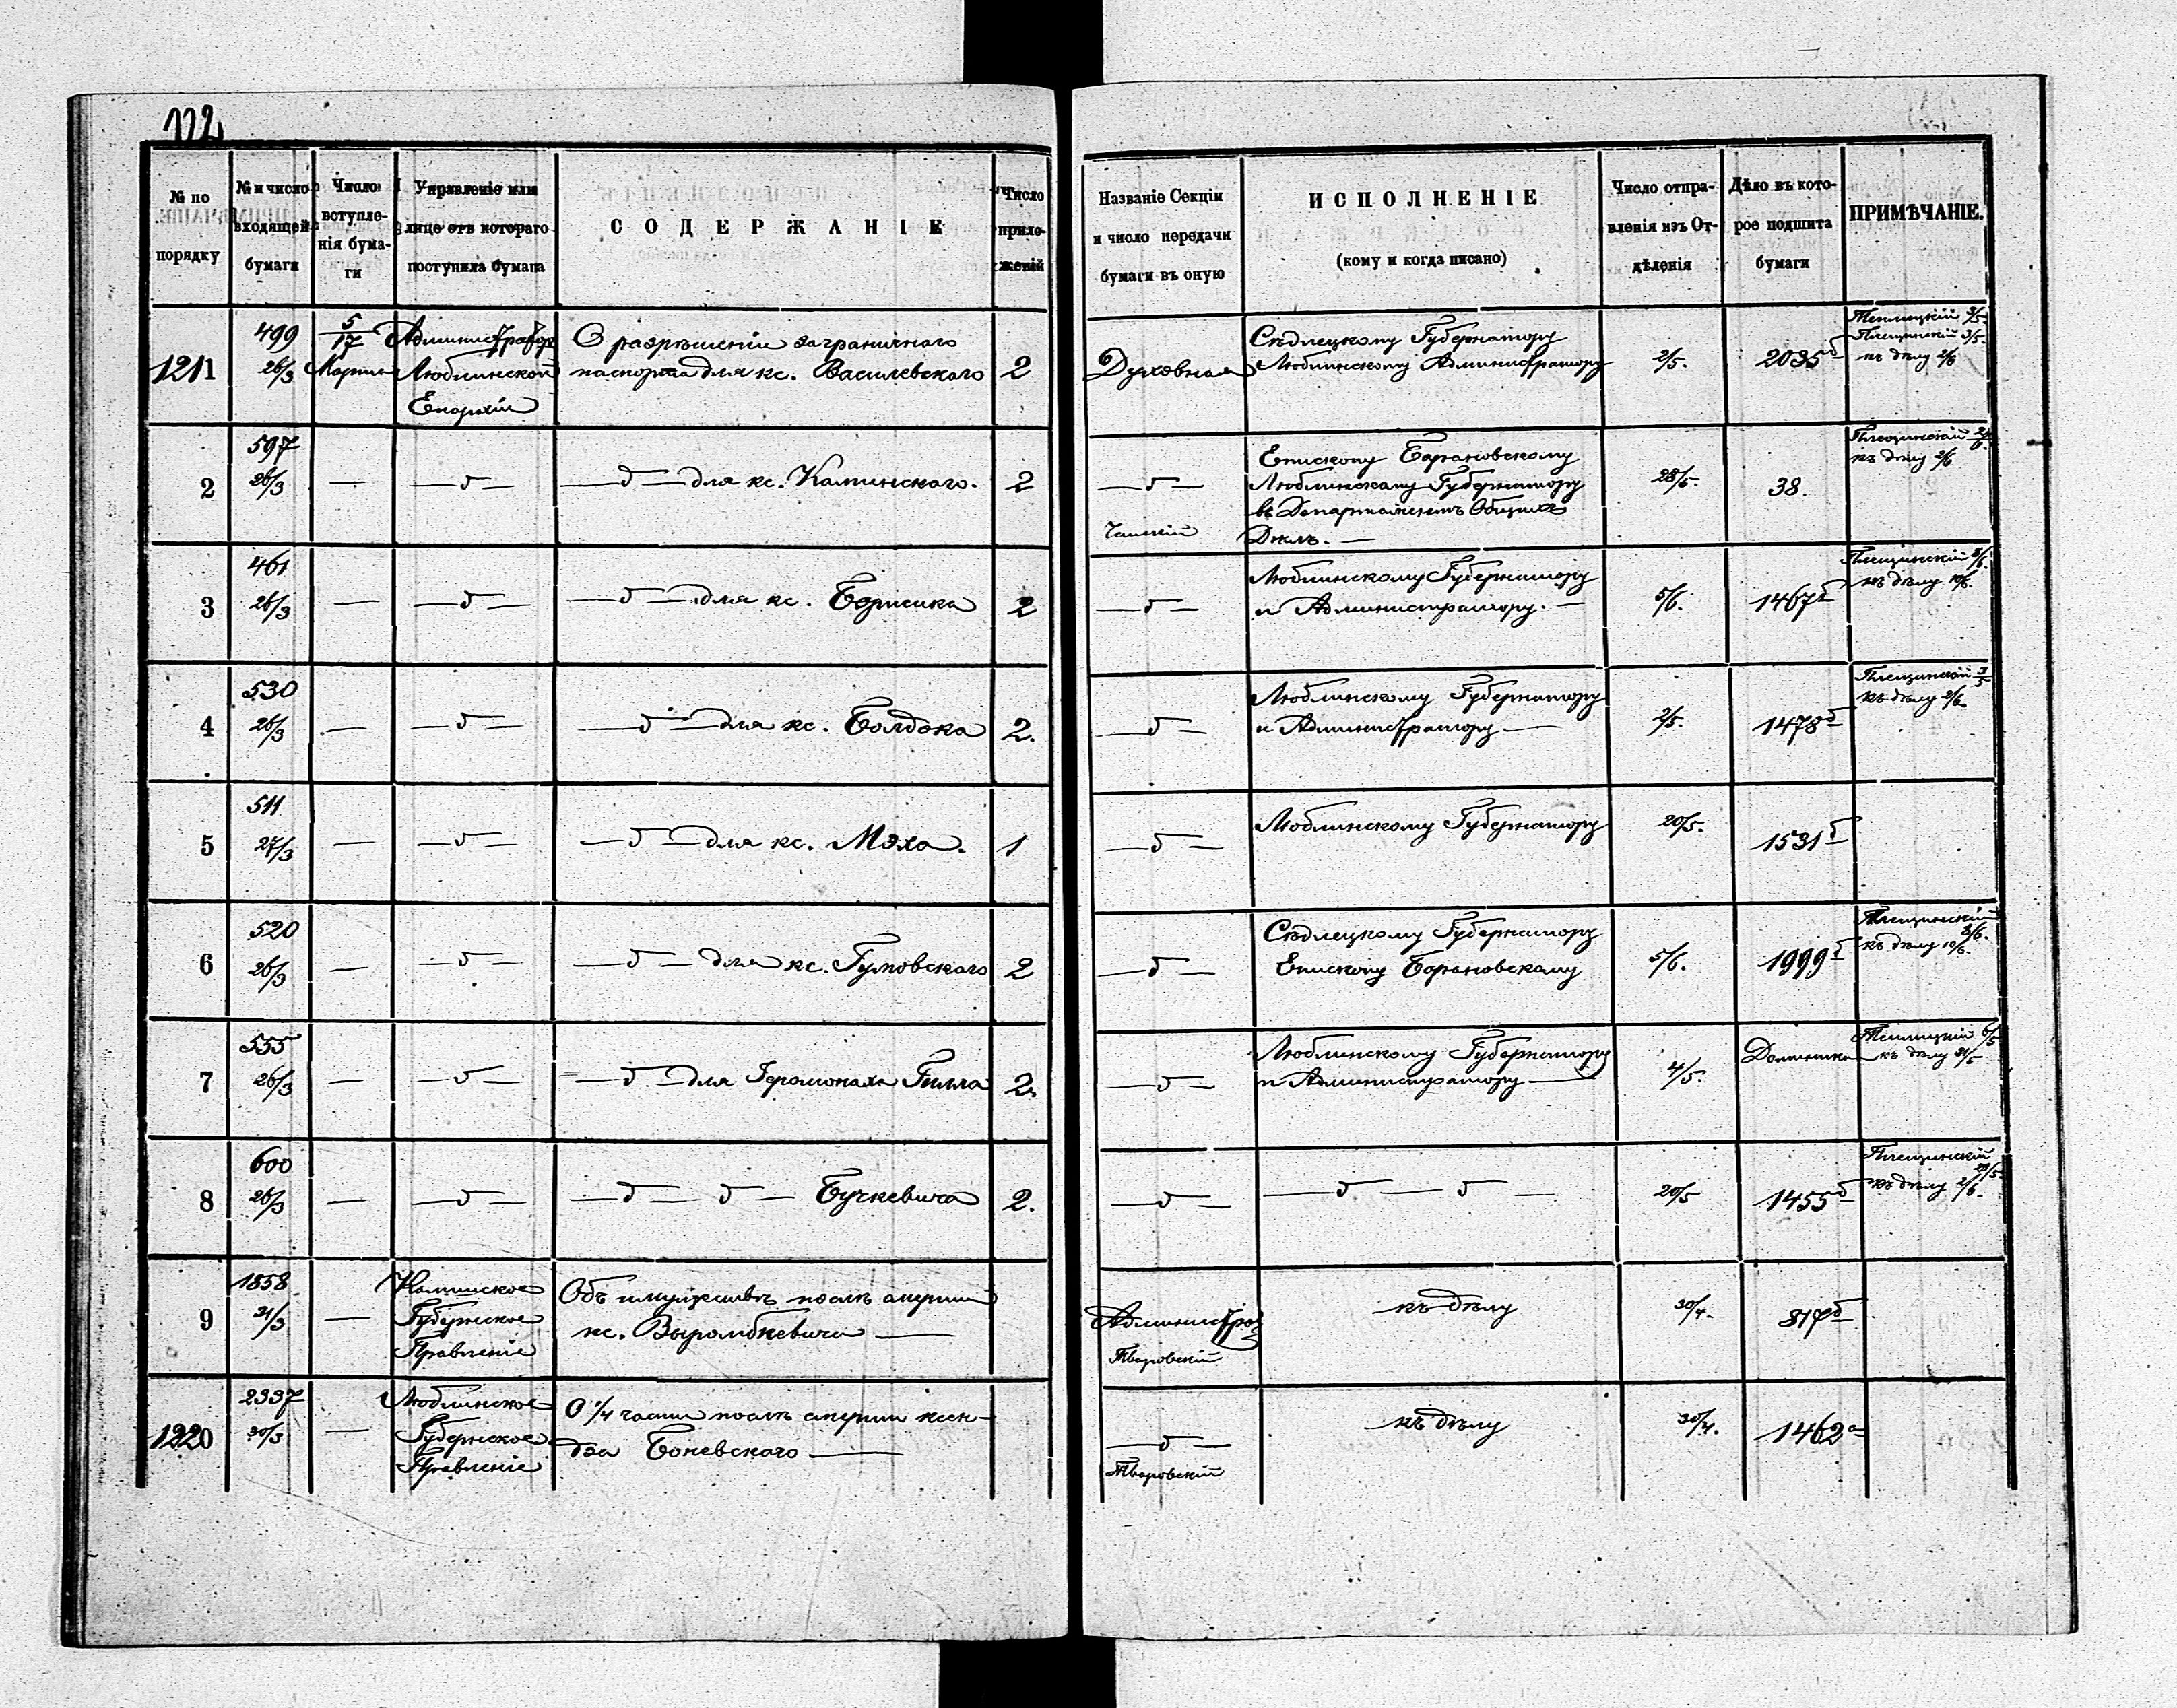 122
№ по порядку
№ и число входящей бумаги
Число вступле-
нія бума-
ги
Управленіе или
лице отъ котораго
поступила бумага
СОДЕРЖАНІЕ
Число
прило-
женій
Названіе Секціи
и число передачи
бумаги въ оную
ИСПОЛНЕНІЕ
(кому и когда писано)
Число отпра-
вленія изъ От-
дѣленія
Дѣло въ кото-
рое подшита
бумаги
ПРИМѢЧАНІЕ.
1211
499
26/3
5/17
Марта
Администраторъ
Люблинской
Епархіи
О разрѣшеніи заграничнаго
паспорта для кс. Василевскаго
2
Духовная
Сѣдлецкому Губернатору
Люблинскому Администратору
2/5.
2035б
Плещинскій 3/5.
къ дѣлу 2/6
2
597
26/3
—
—д—
—д— для кс. Каминскаго.
2
—д—
Епископу Барановскому
Люблинскому Губернатору
въ Департаментъ Общихъ
Дѣлъ. —
28/5.
38.
Плещинскій 2/6.
къ дѣлу 2/6
3
461
26/3
—
—д—
—д— для кс. Борисика
2
—д—
Люблинскому Губернатору
и Администратору. —
5/6.
1467б
Плещинскій 8/6.
къ дѣлу 10/6.
4
530
26/3
—
—д—
—д— для кс. Болдока
2.
—д—
Люблинскому Губернатору
и Администратору —
2/5.
1478б
Плещинскій 3/5
къ дѣлу 2/6.
5
511
27/3
—
—д—
—д— для кс. Мэха.
1
—д—
Люблинскому Губернатору
20/5.
1531б
6
520
26/3
—
—д—
—д— для кс. Гумовскаго
2
—д—
Сѣдлецкому Губернатору
Епископу Барановскому
5/6.
1999б
Плещинскій
8/6.
къ дѣлу 10/6.
7
555
26/3
—
—д—
—д— для Іеромонаха Гилла
2.
—д—
Люблинскому Губернатору
и Администратору —
4/5.
къ дѣлу 31/5
8
600
26/3
—
—д—
—д— д — Бучкевича
2.
—д—
—д— — д —
20/5
1455б
Плещинскій
29/5.
къ дѣлу 2/6.
9
1858
31/3
—
Калишское
Губернское
Правленіе
Объ имуществѣ послѣ смерти
кс. Выромбкевича —
Администра
Тваровскій
къ дѣлу
30/4.
817б
1220
2337
30/3
—
Люблинское
Губернское
Правленіе
О 1/4 части послѣ смерти ксен-
дза Боневскаго —
—д—
Тваровскій
къ дѣлу
30/4.
1462а